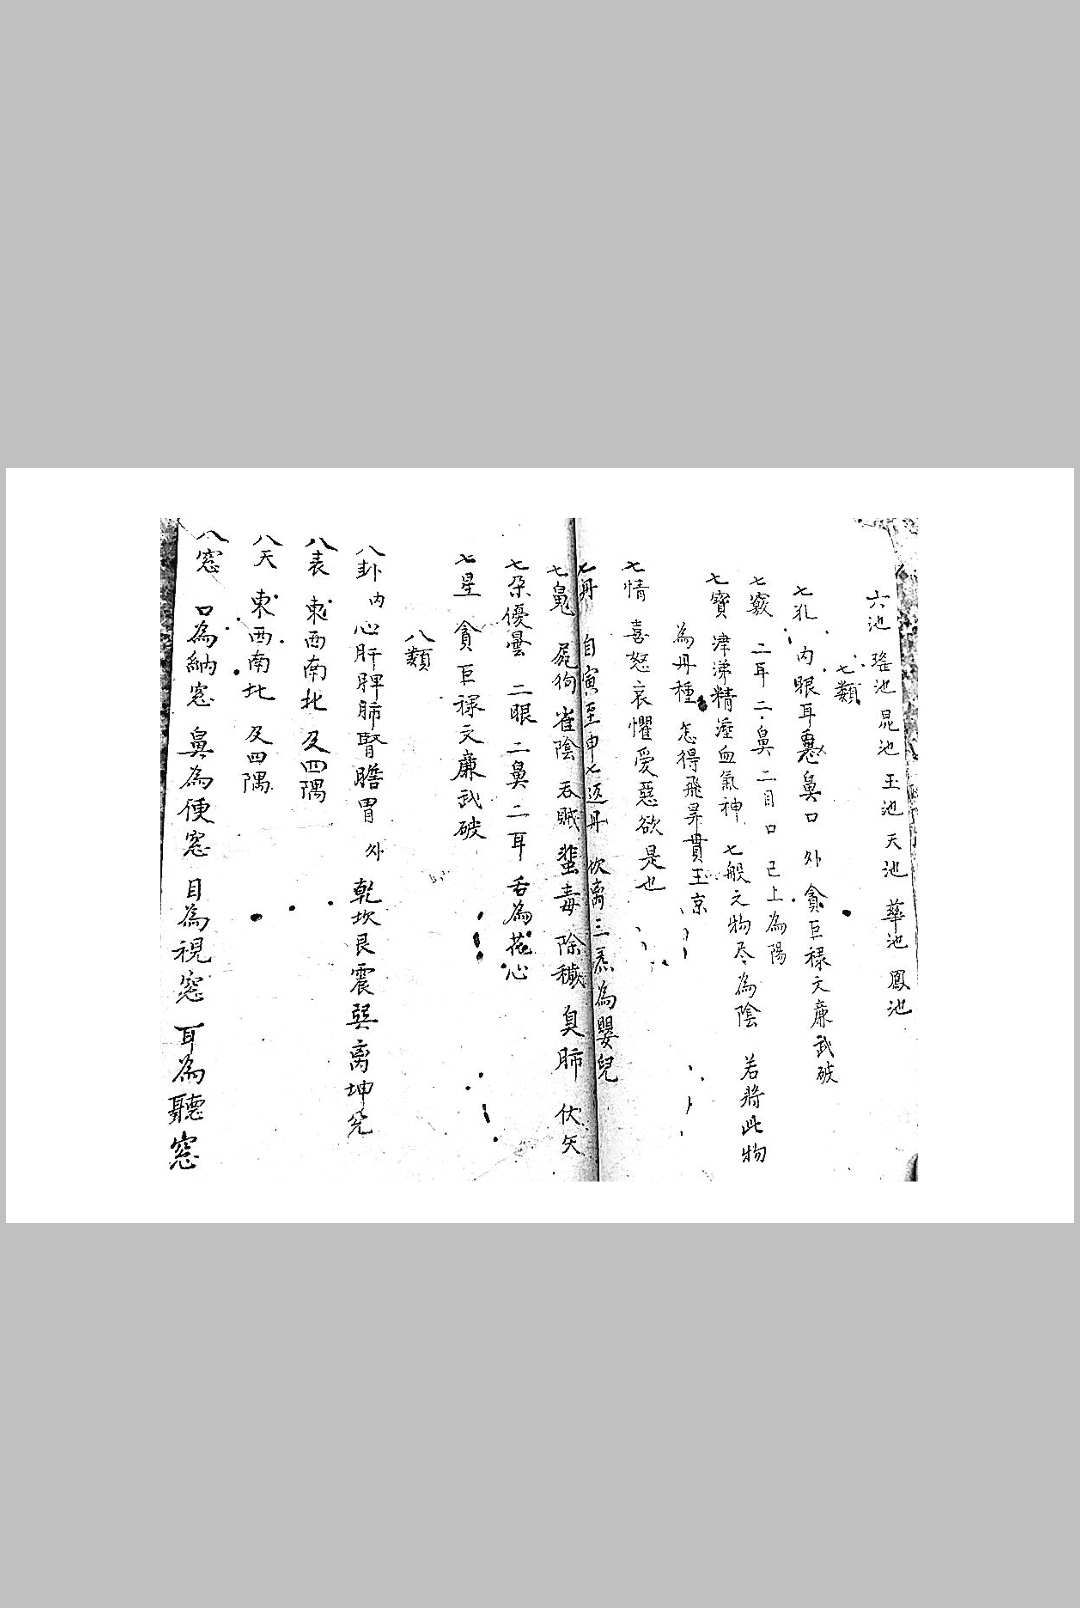 六池 瑤池 昆池 玉池 天池 華池 鳳池
七類
七孔 內眼耳鼻口 外 貪巨祿文廉武破
七竅 二耳二鼻二目口 已上為陽
七寶 津涕精涶血氣神 七般之物尽為陰 若將此物
為丹種 怎得飛昇貫玉京
七情 喜怒哀懼愛惡欲是也
七丹 自寅至申七返丹 坎离三 為嬰兒
七魄 屍狗 雀陰 吞賊 蜚毒 除穢 臭肺 伏矢
七朶優曇 二眼二鼻二耳 舌為花心
七星 貪巨祿文廉武破
八類
八卦 內 心肝脾肺腎膽胃 外 乾坎艮震巽离坤兌
八表 東西南北 及四隅
八天 東西南北 及四隅
八窓 口為納窓 鼻為便窓 目為視窓 耳為聽窓